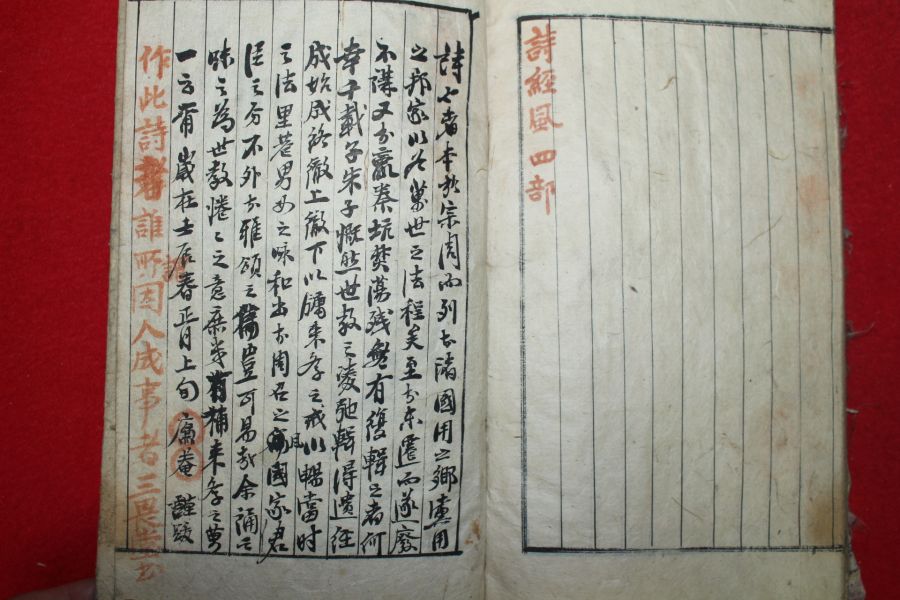 詩經風 四部
詩七者本於宗周而列於諸國用之鄉黨用
之邦家以爲萬世之法程矣至於東遷而遂廢
不講又於嬴秦坑焚蕩殘無有復輯之者何
幸千載子朱子慨然世敎之凌弛輯得遺經
成始成終徹上徹下以牖來學之戒以暢當時
之法里巷男女之咏和出於周召之風國家君
臣之分不外於雅頌之篇豈可易哉余誦之
味之爲世敎惓〻之意庶幾有補來學之萬
一云爾 歲在壬辰春正月上旬 庵 謹跋
作此詩者誰所因人成事者三